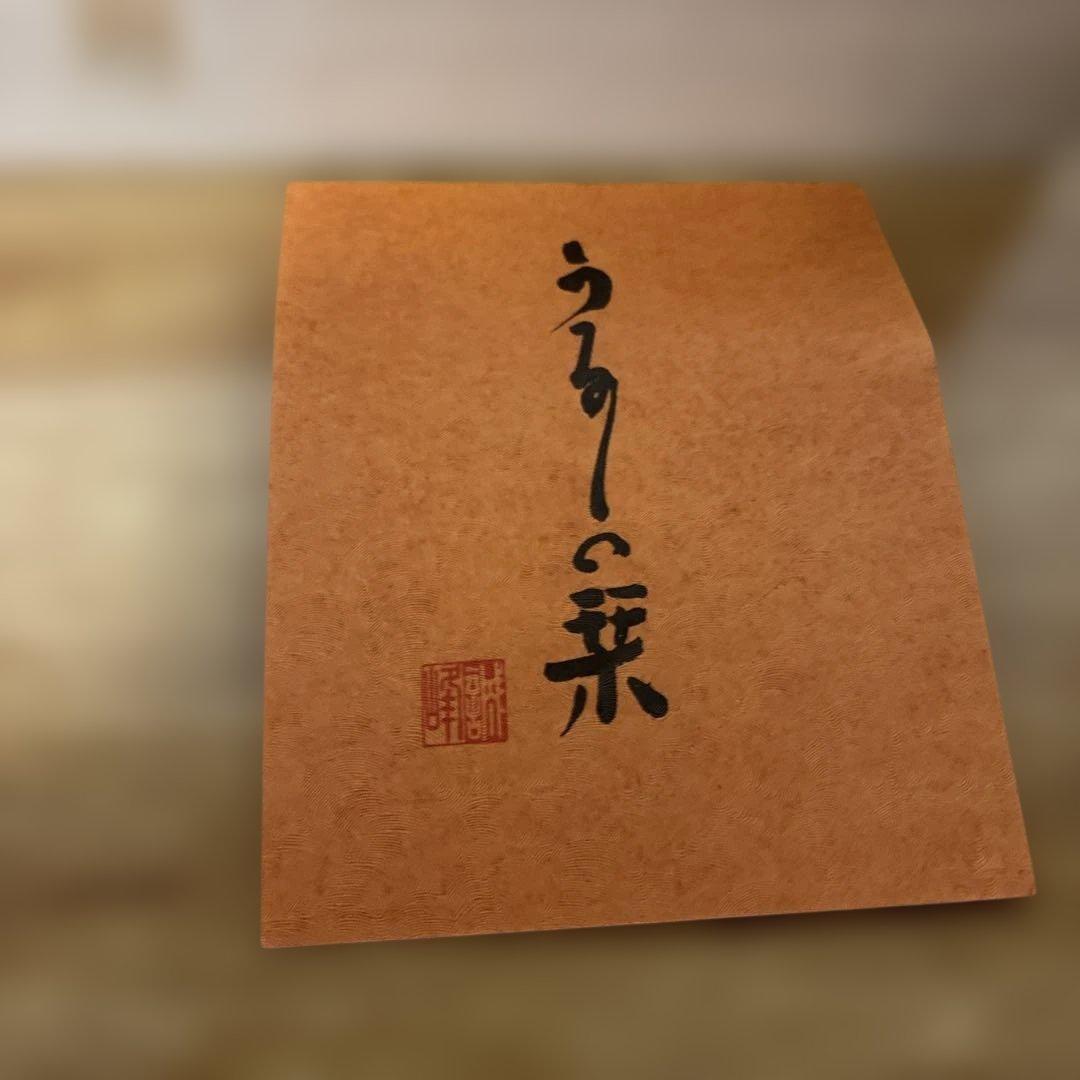 うるしの栞